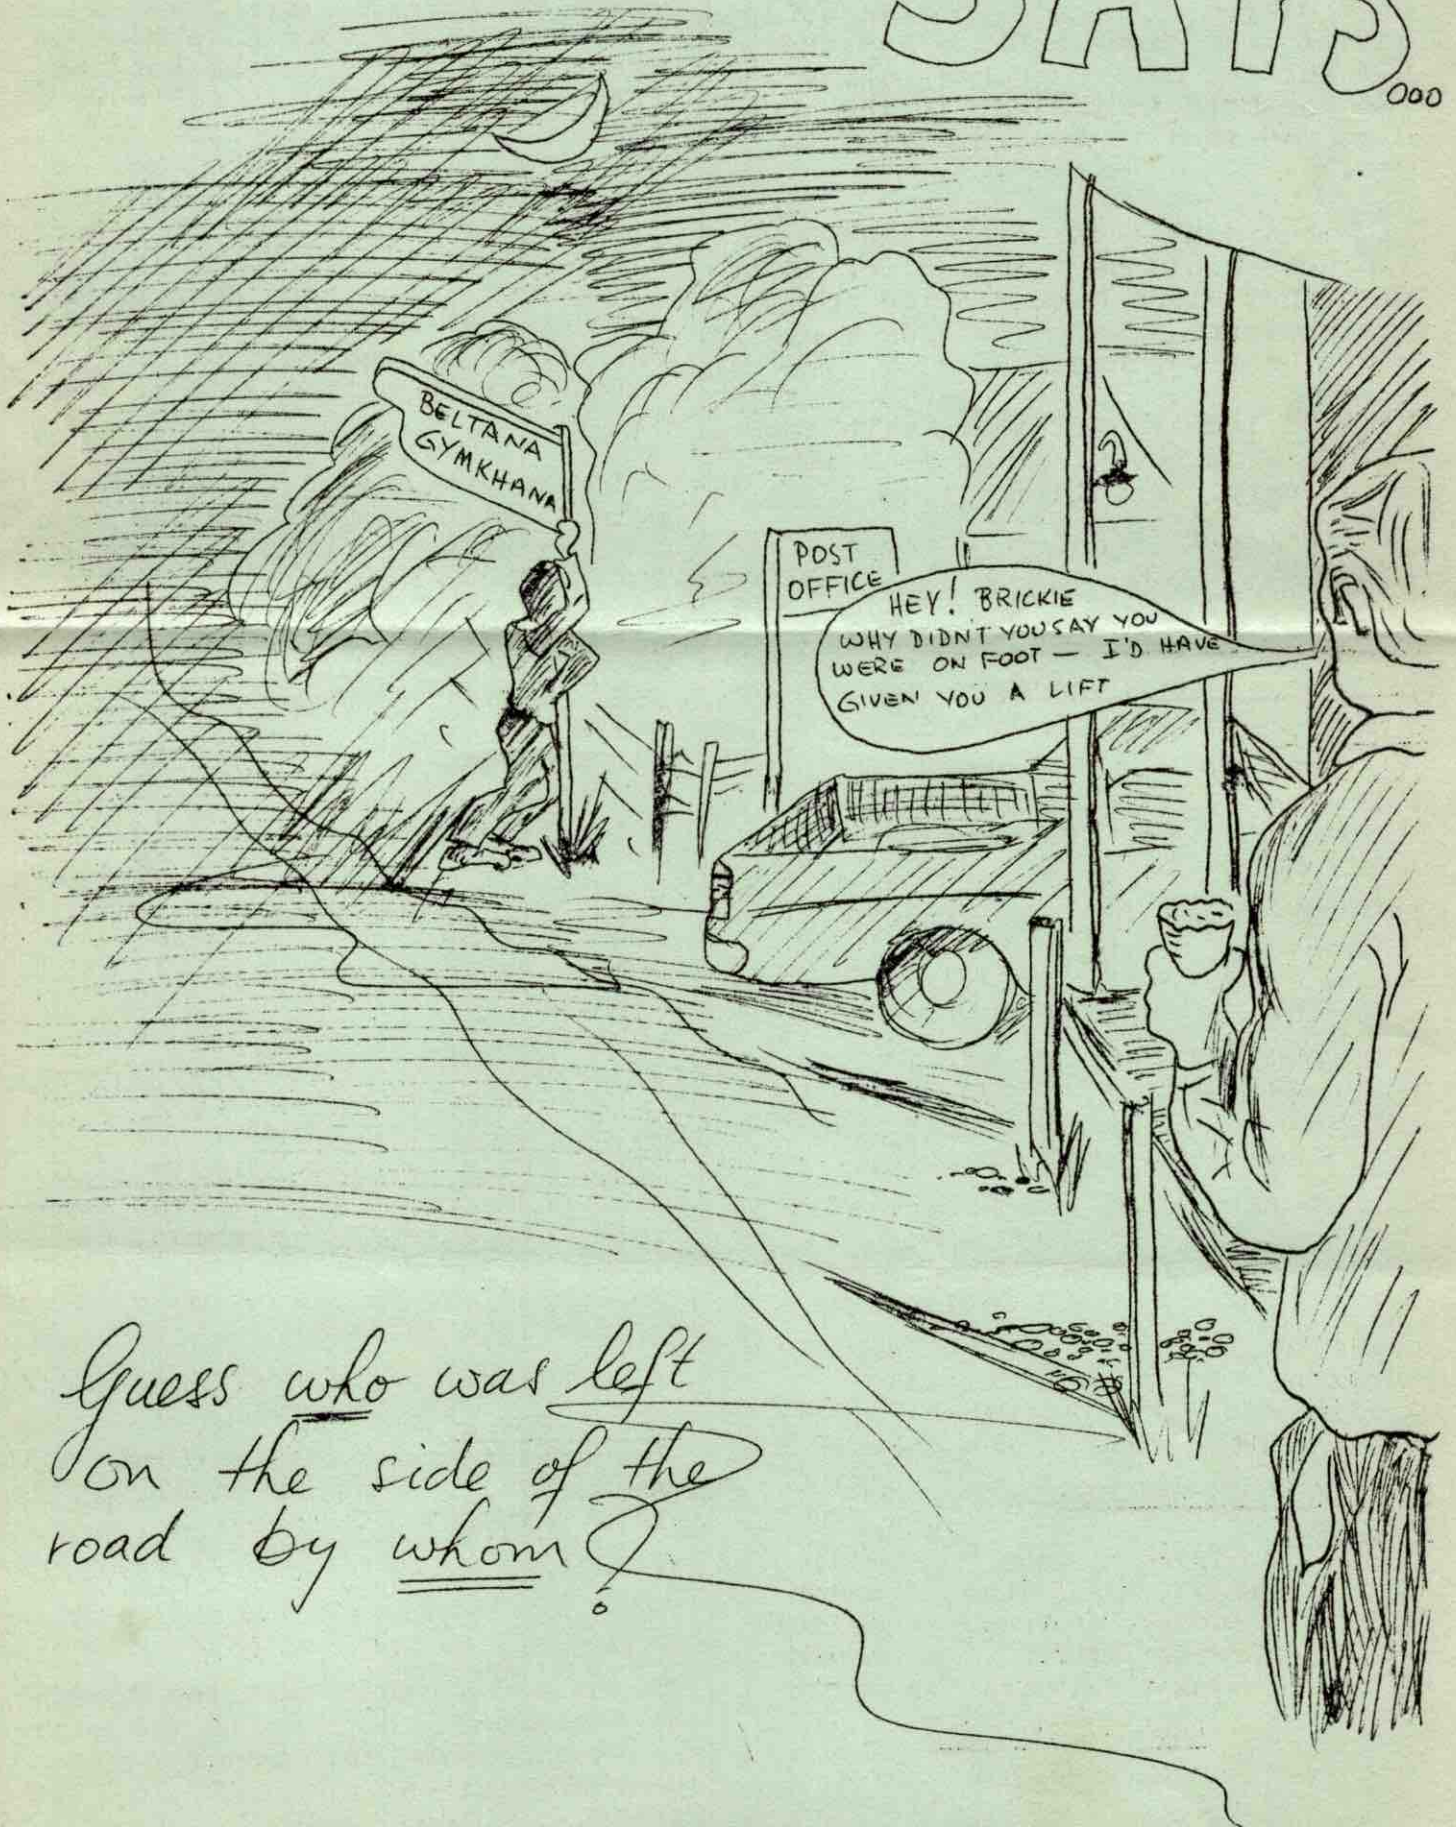 SAYS...
BELTANA
GYMKHANA
POST
OFFICE
HEY! BRICKIE
WHY DIDN'T YOU SAY YOU
WERE ON FOOT — I'D HAVE
GIVEN YOU A LIFT
Guess who was left
on the side of the
road by whom?